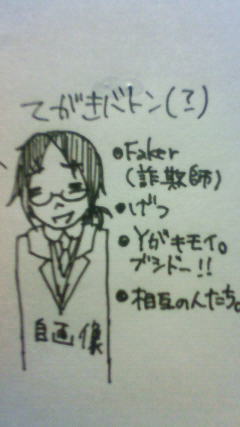 てがきバトン(?)
●Faker
(詐欺師)
●げつ
●Yがキモイ。
ブシドー!!
●相互の人たち。
自画像